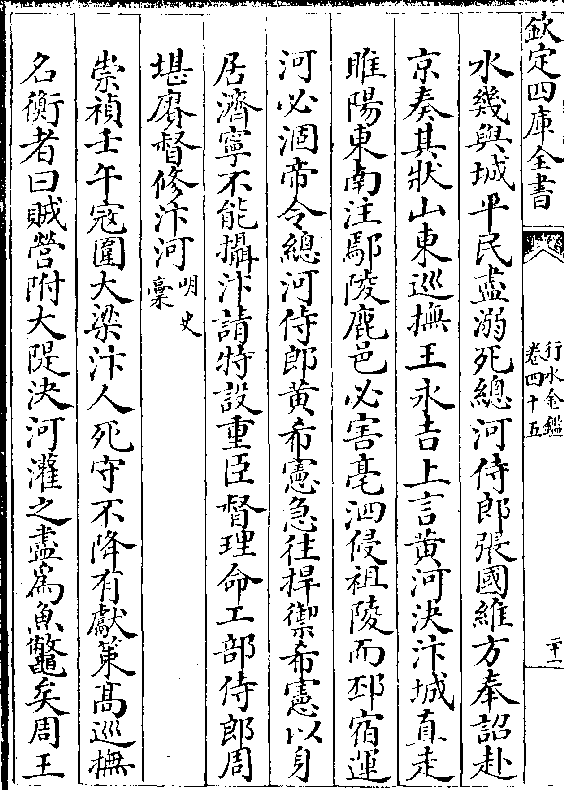 欽定四庫全書
行水金鑑
卷四十五
二十一
水幾與城平民盡溺死總河侍郎張國維方奉詔赴
京奏其狀山東巡撫王永吉上言黃河決汴城直走
睢陽東南注鄢陵鹿邑必害亳泗侵祖陵而邳宿運
河必涸帝令總河侍郎黃希憲急往捍禦希憲以身
居濟寧不能攝汴請特設重臣督理命工部侍郎周
堪賡督修汴河明史
稾
崇禎壬午寇圍大梁汴人死守不降有獻策高巡撫
名衡者曰賊營附大隄決河灌之盡為魚鼈矣周王